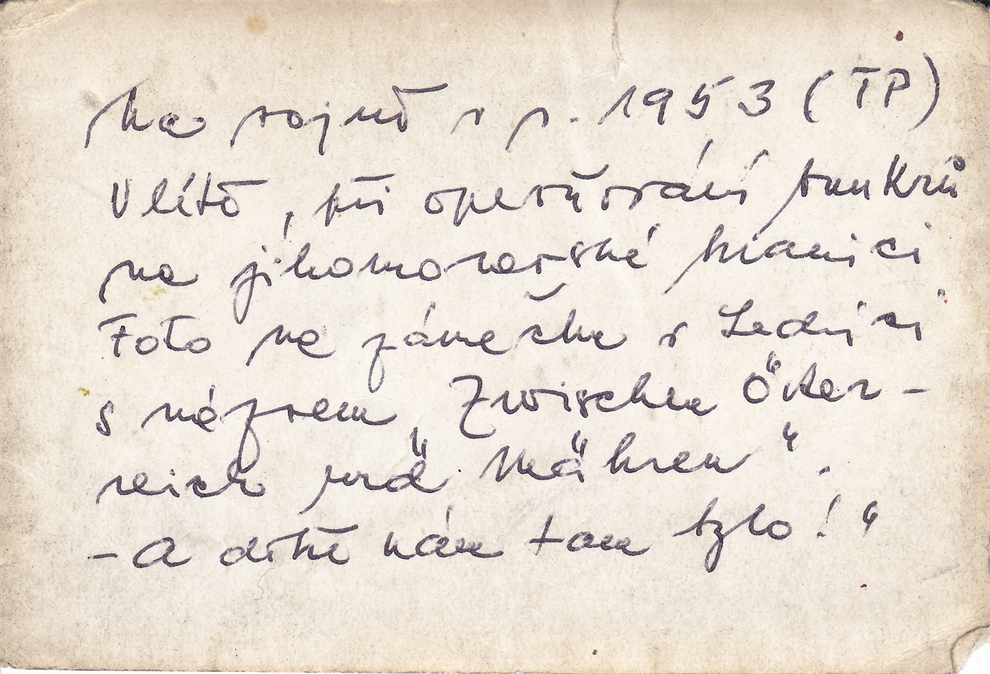 Na vojně v r. 1953 (TP)
V létě, při opevňování bunkrů
na jihomoravské hranici
Foto na zámečku v Lednici
s názvem „Zwischen Öster-
reich und Mähren".
- A dobře nám tam bylo!"